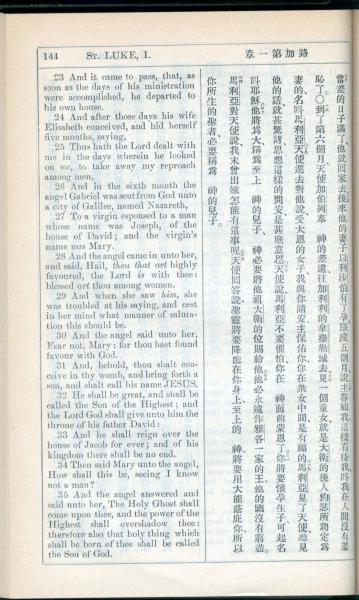 144
ST. LUKE, I.
路加第一章
23 And it came to pass, that, as
soon as the days of his ministration
were accomplished, he departed to
his own house.
24 And after those days his wife
Elisabeth conceived, and hid herself
five months, saying,
25 Thus hath the Lord dealt with
me in the days wherein he looked
on me, to take away my reproach
among men.
26 And in the sixth month the
angel Gabriel was sent from God unto
a city of Galilee, named Nazareth,
27 To a virgin espoused to a man
whose name was Joseph, of the
house of David; and the virgin's
name was Mary.
28 And the angel came in unto her,
and said, Hail, thou that art highly
favoured, the Lord is with thee:
blessed art thou among women.
29 And when she saw him, she
was troubled at his saying, and cast
in her mind what manner of saluta-
tion this should be.
30 And the angel said unto her,
Fear not, Mary: for thou hast found
favour with God.
31 And, behold, thou shalt con-
ceive in thy womb, and bring forth a
son, and shalt call his name JESUS.
32 He shall be great, and shall be
called the Son of the Highest; and
the Lord God shall give unto him the
throne of his father David:
33 And he shall reign over the
house of Jacob for ever; and of his
kingdom there shall be no end.
34 Then said Mary unto the angel,
How shall this be, seeing I know
not a man?
35 And the angel answered and
said unto her, The Holy Ghost shall
come upon thee, and the power of the
Highest shall overshadow thee:
therefore also that holy thing which
shall be born of thee shall be called
the Son of God.
當差的日子滿了他就回家去後來他的妻子以利沙伯有了孕隱藏五個月說主眷顧我這樣看待我叫我在人間沒有羞
恥了〇到了第六個月天使加伯列奉 神的差遣往加利利的拿撒勒城去見一個童女就是大衛的後人約瑟所聘定爲
妻的名叫馬利亞天使進去對他說受大恩的女子我與你請安主保佑你你在衆女中間是有福的馬利亞見了天使聽見
他的話就甚驚訝思想這樣的問安是甚麽意思天使說馬利亞不要懼怕你在 神面前蒙恩了你將要懷孕生子可起名
叫耶穌他將爲大稱爲至上 神的兒子 神必要將他祖大衛的位賜給他他必永遠作雅各一家的王他的國沒有窮盡
馬利亞對天使說我未曾出嫁怎能有這事呢天使回答說聖靈將要降臨在你身上至上的 神要用大能蔭庇你所以
你所生的聖者必要稱爲 神的兒子